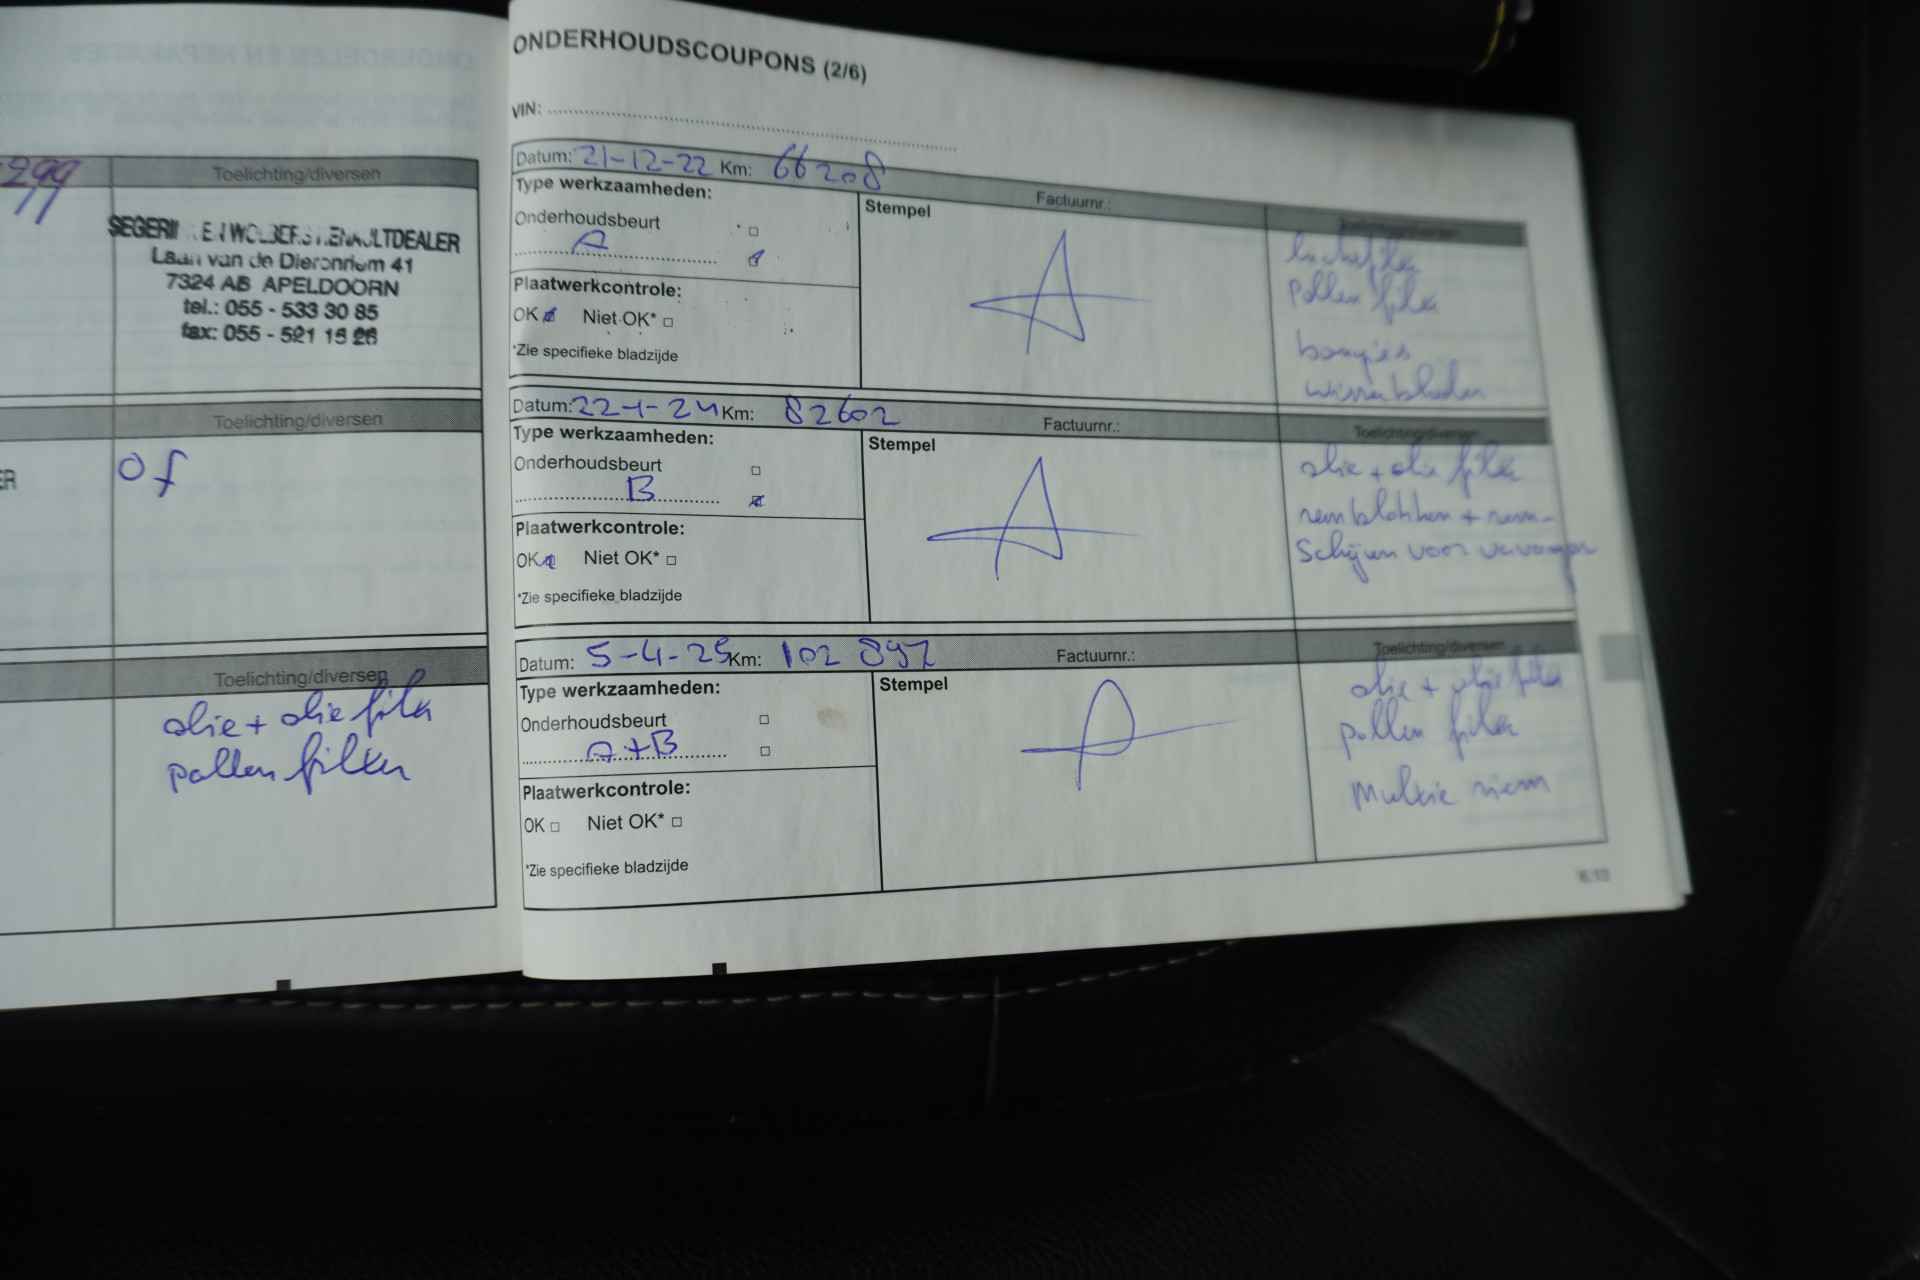 299
Toelichting/diversen
RENAULTDEALER
Laan van de Dierenriem 41
7324 AB APELDOORN
tel.: 055 - 533 30 85
fax: 055 - 521 15 26
Toelichting/diversen
ER
of
Toelichting/diversen
olie + olie filter
pollen filter
ONDERHOUDSCOUPONS (2/6)
VIN:
Datum: 21-12-22 Km: 66208
Factuurnr.:
Type werkzaamheden:
Stempel
Onderhoudsbeurt
A
Plaatwerkcontrole:
OK Niet OK*
*Zie specifieke bladzijde
pollen filter
bougies
wisserbladen
Datum: 22-1-24 Km: 82602
Factuurnr.:
Toelichting/diversen
Type werkzaamheden:
Stempel
Onderhoudsbeurt
B
Plaatwerkcontrole:
OK Niet OK*
*Zie specifieke bladzijde
olie + olie filter
remblokken + rem-
schijven voor vervangen
Datum: 5-4-25 Km: 102 897
Factuurnr.:
Toelichting/diversen
Type werkzaamheden:
Stempel
Onderhoudsbeurt
A+B
Plaatwerkcontrole:
OK Niet OK*
*Zie specifieke bladzijde
olie + olie filter
pollen filter
Multie riem